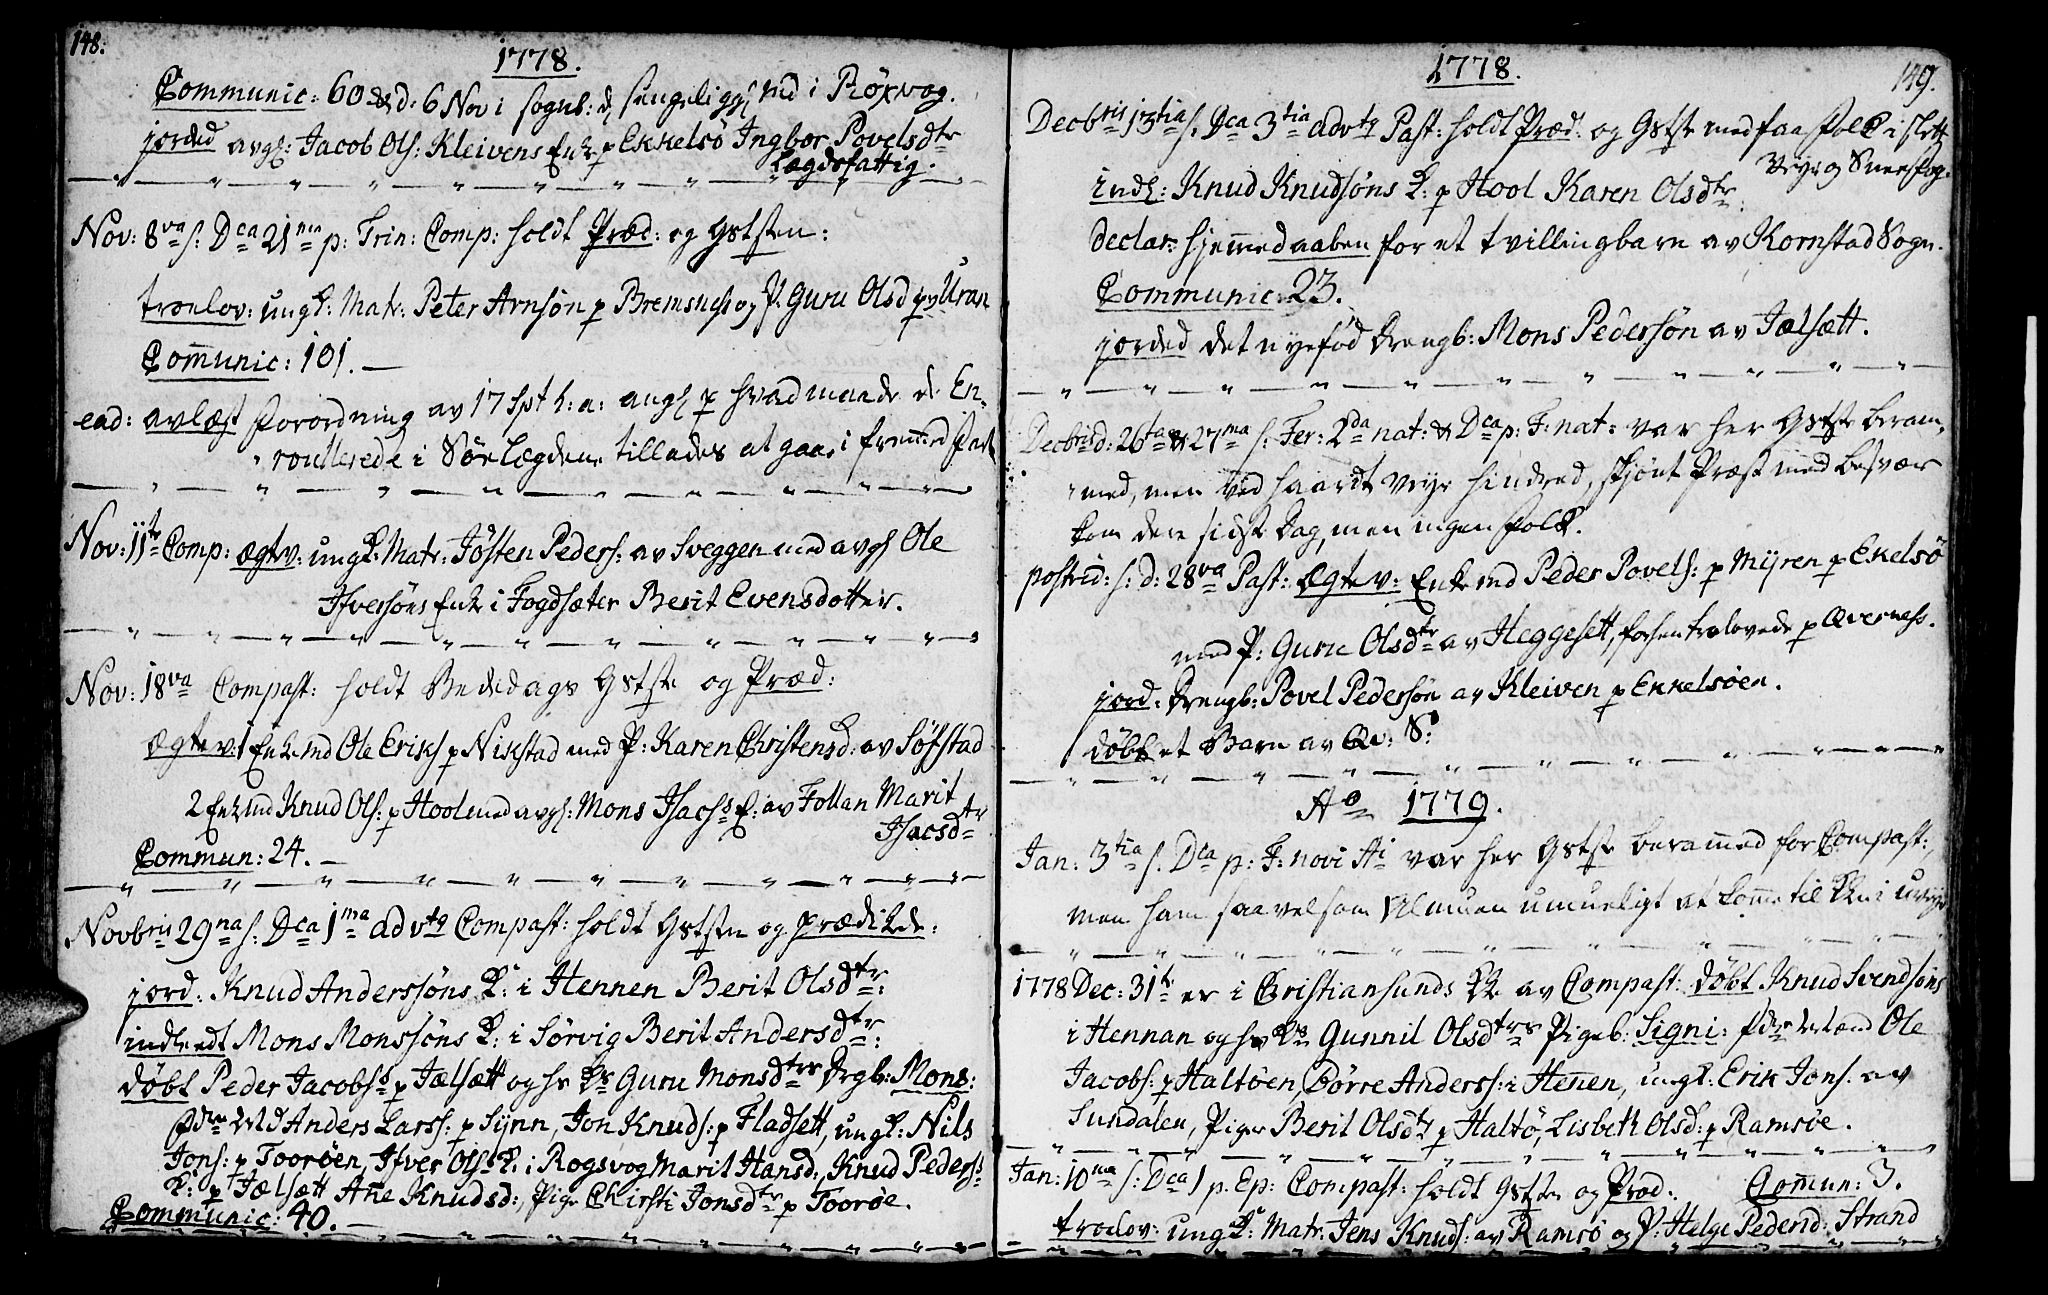 148.
1778.
Communic: 60 & d: 6 Nov i sognet: d sengeligg md i Röxvog.
jorded avgl: Jacob Ols: Kleivens Enk p Ekkelsö Ingbor Povelsdtr
Lægdsfattig.
Nov: 8va s: Dca 21ma p: Trin: Comp: holdt Præd: og Gststen:
trolov: ungk: Matr: Peter Arnsön p Bremsnes og P. Guru Olsd py Uran
Communic: 101.
ead: avlæst Forordning av 17 Spt h: a: ang p hvad maade de En-
roullerede i Söelægdene tillades at gaae i fremmed Fart
Nov: 11te Comp: ægtv: ungk: Matr: Jösten Peders: av Sveggen med avgl Ole
Ifversöns Enk i Fogdsæter Berit Evensdotter.
Nov: 18va Compast: holdt Bededags Gstste og Præd:
Ægtev: 1 Enkmd Ole Eriks p Nikstad med P: Karen Christensd: av Söfstad
2 Enkmd Knud Ols: p Hool med avgl: Mons Isachs E: av Follan Marit
Isacsdtr
Commun: 24.
Novbris 29na s: Dca 1ma advtq Compast: holdt Gststen og prædikede:
jord. Knud Anderssöns K: i Hennen Berit Olsdtr:
indleedt Mons Monssöns K: i Sörvig Berit Andersdtr:
döbt Peder Jacobs: p Jælsætt og hs Ks Guru Monsdtrs Drgb: Mons:
Fdre Md Anders Larss: p Synn, Jon Knuds: p Fladsett, ungk: Nils
Jons: p Tooröen, Ifver Ols K: i Rogsvog Marit Hansd:, Knud Peders:
K: p Jælsætt Ane Knudsd:, Pige Chirsti Jonsdtr p Tooröe.
Communic: 40.
1778.
149.
Decbris 13tia s: Dca 3tia advtq Past: holdt Præd: og Gstste med faa Folk i slett
Veyr og Sneefog.
indl: Knud Knudsöns K: p Hool Karen Olsdtr.
declar: hjemmedaaben for et tvillingbarn av Kornstad Sogn.
Communic: 23.
jorded det nyefödt Drengb: Mons Pedersön av Jælsætt.
Decbris d: 26ta & 27ma s: Fer: 2da nat: & Dca p: F: nat: var her Gstste beram-
med, men ved haardt Veyr hindred, skjönt Præst med besvær
kom den sidste Dag, men ingen Folk.
postrid: s: d: 28va Past: Ægtev: Enkemd Peder Povels: p Myren p Ekelsö
med P: Guru Olsdtr av Heggesett, forhen trolovede p Qverness.
jord: Drengb: Povel Pedersön av Kleiven p Enkelsöen.
döbt et Barn av Qv: S:
Ao 1779.
Jan: 3tia s: Dca p: F: novi Ai var her Gstste berammed for Compast:,
men ham saavelsom Almuen umueligt at komme til Kn i uveyr
1778 Dec: 31te er i Christiansunds Ke av Compast: döbt Knud Svendsöns
i Hennan og hs Ks Gunnil Olsdtrs Pigeb: Signi: Fdre Mænd Ole
Jacobs: p Haltöen, Börre Anderss: i Hennen, ungk: Erik Jons: av
Sundalen, Piger Berit Olsdtr p Haltö, Lisbeth Olsd: p Ramsöe.
Jan: 10ma s: Dca 1 p. Ep: Compast: holdt Gstste og Præd: Commun: 3.
trolov: ungk: Matr. Jens Knuds: av Ramsö og P: Helge Pedersd: Strand